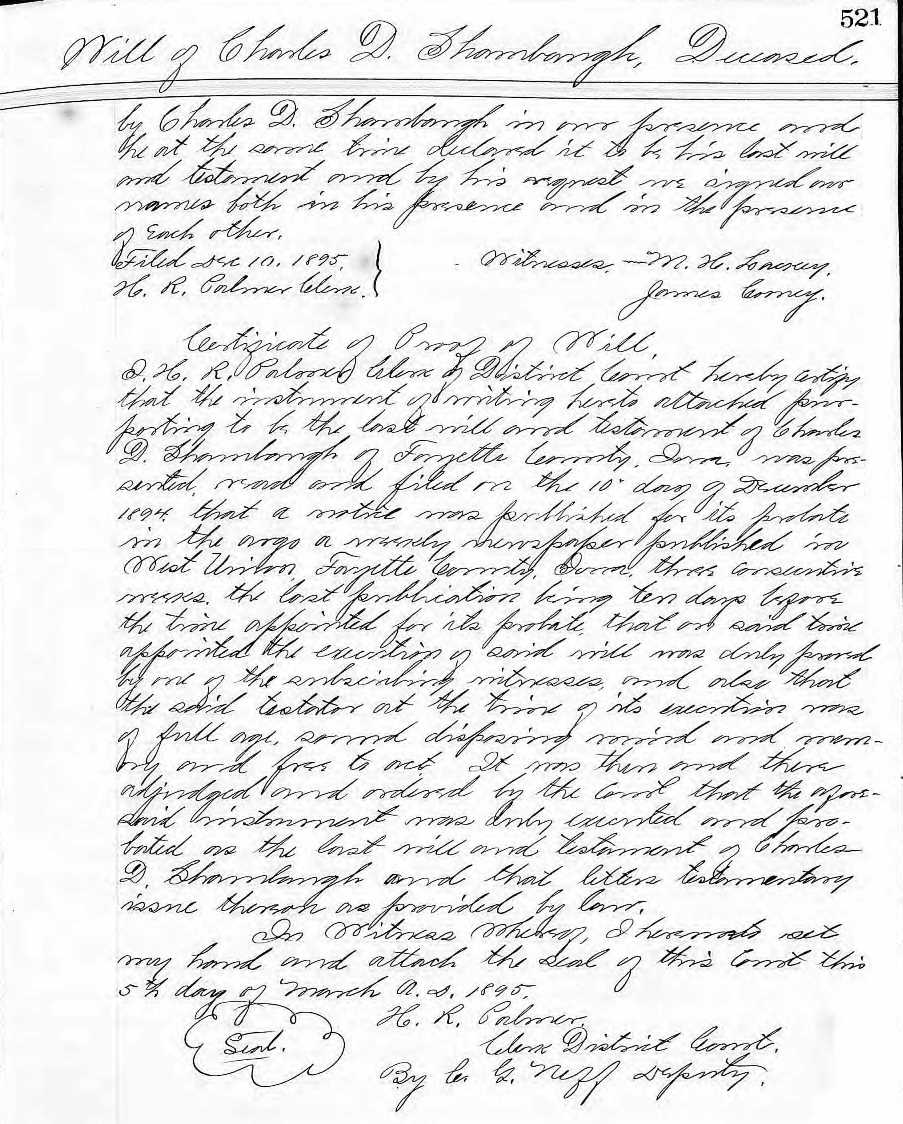 521
Will of Charles D. Shambaugh, Deceased.
by Charles D. Shambaugh in our presence and
he at the same time declared it to be his last will
and testament and by his request we signed our
names both in his presence and in the presence
of each other.
Filed Dec 10, 1895. Witnesses. — M. H.
H. R. Palmer Clerk. James Comey.
Certificate of Proof of Will.
I. H. R. Palmer Clerk of District Court hereby certify
that the instrument of writing hereto attached pur-
porting to be the last will and testament of Charles
D. Shambaugh of Fayette County, Iowa, was pre-
sented, read and filed on the 10" day of December
1894. that a notice was published for its probate
in the argo a weekly newspaper published in
West Union, Fayette County, Iowa, three consecutive
weeks. the last publication being ten days before
the time appointed for its probate. that on said time
appointed the execution of said will was duly proved
by one of the subscribing witnesses, and also that
the said testator at the time of its execution was
of full age, sound disposing mind and mem-
ory and free to act. It was then and there
adjudged and ordered by the Court that the afore-
said instrument was duly executed and pro-
bated as the last will and testament of Charles
D. Shambaugh and that letters testamentary
issue thereon as provided by law.
In Witness Whereof, I hereunto set
my hand and attach the seal of this Court this
5th day of March A. D. 1895.
H. R. Palmer,
Seal. Clerk District Court.
By C. G. Neff Deputy.